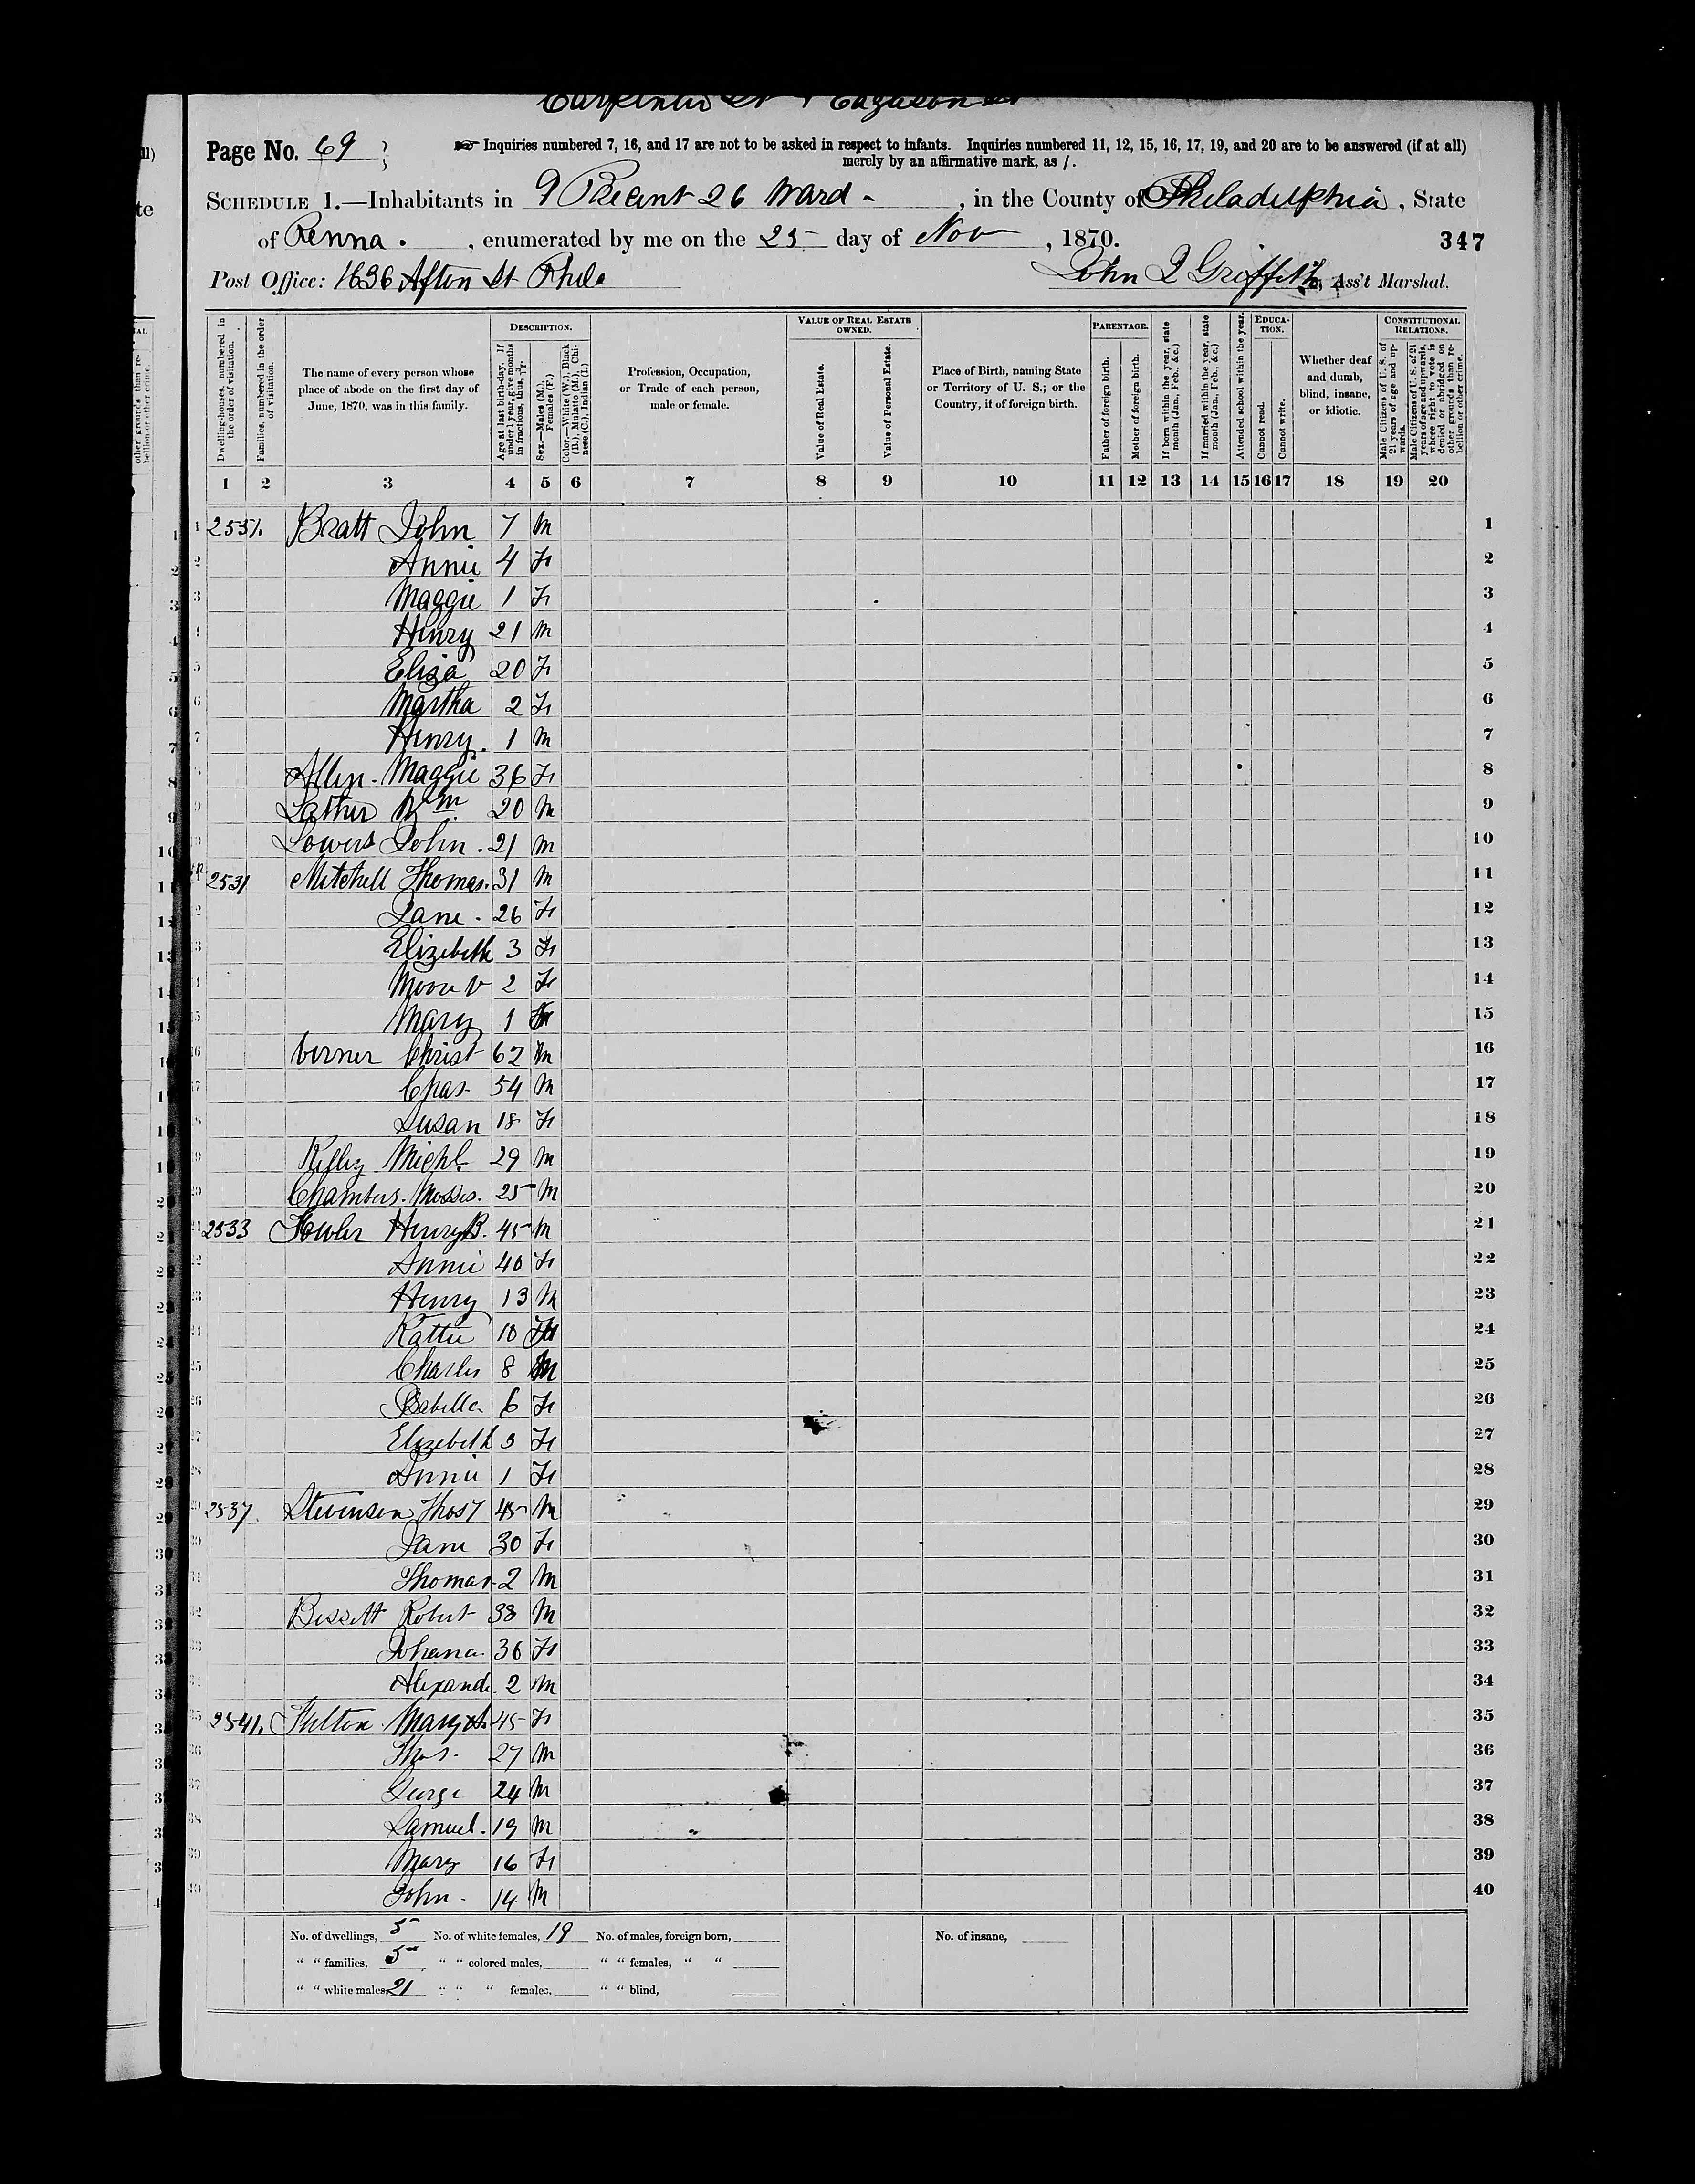 Page No. 69
☞ Inquiries numbered 7, 16, and 17 are not to be asked in respect to infants. Inquiries numbered 11, 12, 15, 16, 17, 19, and 20 are to be answered (if at all)
merely by an affirmative mark, as /.
SCHEDULE 1.—Inhabitants in 9 Precint 26 Ward -, in the County of Philadelphia, State
of Penna., enumerated by me on the 25 day of Nov, 1870.
347
Post Office: 1636 Afton St Phila
John Q Griffith, Ass't Marshal.
Dwelling-houses, numbered in the order of visitation.
Families, numbered in the order of visitation.
The name of every person whose place of abode on the first day of June, 1870, was in this family.
DESCRIPTION.
Age at last birth-day. If under 1 year, give months in fractions, thus, 3/12.
Sex.—Males (M.), Females (F.)
Color.—White (W.), Black (B.), Mulatto (M.), Chinese (C.), Indian (I.)
Profession, Occupation, or Trade of each person, male or female.
VALUE OF REAL ESTATE OWNED.
Value of Real Estate.
Value of Personal Estate.
Place of Birth, naming State or Territory of U. S.; or the Country, if of foreign birth.
PARENTAGE.
Father of foreign birth.
Mother of foreign birth.
If born within the year, state month (Jan., Feb., &c.)
If married within the year, state month (Jan., Feb., &c.)
Attended school within the year.
EDUCATION.
Cannot read.
Cannot write.
Whether deaf and dumb, blind, insane, or idiotic.
CONSTITUTIONAL RELATIONS.
Male Citizens of U. S. of 21 years of age and upwards.
Male Citizens of U. S. of 21 years of age and upwards, where right to vote is denied or abridged on other grounds than rebellion or other crime.
1 2 3 4 5 6 7 8 9 10 11 12 13 14 15 16 17 18 19 20
1 Bratt John 7 M 1
2 Annie 4 F 2
3 Maggie 1 F 3
4 Henry 21 M 4
5 Eliza 20 F 5
6 Martha 2 F 6
7 Henry. 1 M 7
Allen. Maggie 36 F 8
9 Wm. 20 M 9
Lowers John. 21 M 10
2531 Mitchell Thomas. 31 M 11
12 Jane. 26 F 12
13 Elizebeth 3 F 13
2 F 14
15 Mary 1 F 15
16 Verner Christ 62 M 16
17 Chas. 54 M 17
18 Susan 18 F 18
19 Kelley Michl. 29 M 19
20 Chambers. Mosses. 25 M 20
21 2533 Fowler Henry B. 45 M 21
22 Annie 40 F 22
23 Henry 13 M 23
24 Kattie 10 F 24
25 Charles 8 M 25
26 6 F 26
27 Elizebeth 3 F 27
28 Annie 1 F 28
29 2537 Stevenson Thos 45 M 29
30 Jane 30 F 30
31 Thomas 2 M 31
32 Bissett Robert 38 M 32
33 Johana 36 F 33
34 Alexande 2 M 34
35 2541. Mary A. 45 F 35
36 Thos. 27 M 36
37 George 24 M 37
38 Samuel. 19 M 38
39 Mary 16 F 39
40 John - 14 M 40
No. of dwellings, 5 No. of white females, 19 No. of males, foreign born, No. of insane,
" " families, 5 " " colored males, " " females, " "
" " white males, 21 " " " females, " " blind,